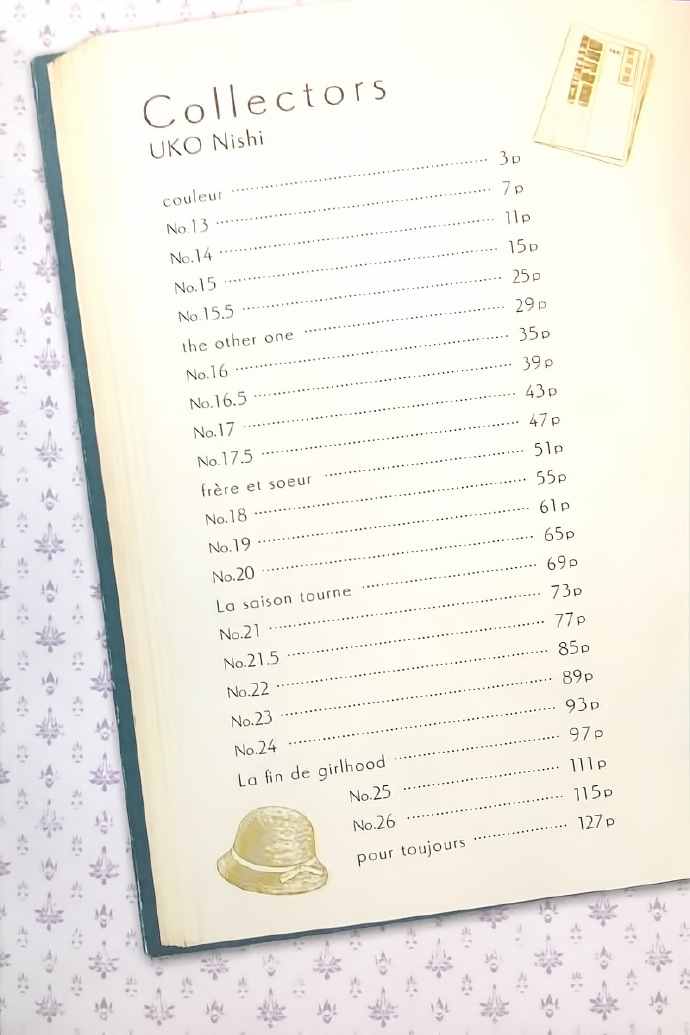 Collectors
UKO Nishi
couleur 3p
No.13 7p
No.14 11p
No.15 15p
No.15.5 25p
the other one 29p
No.16 35p
No.16.5 39p
No.17 43p
No.17.5 47p
frère et soeur 51p
No.18 55p
No.19 61p
No.20 65p
La saison tourne 69p
No.21 73p
No.21.5 77p
No.22 85p
No.23 89p
No.24 93p
La fin de girlhood 97p
No.25 111p
No.26 115p
pour toujours 127p